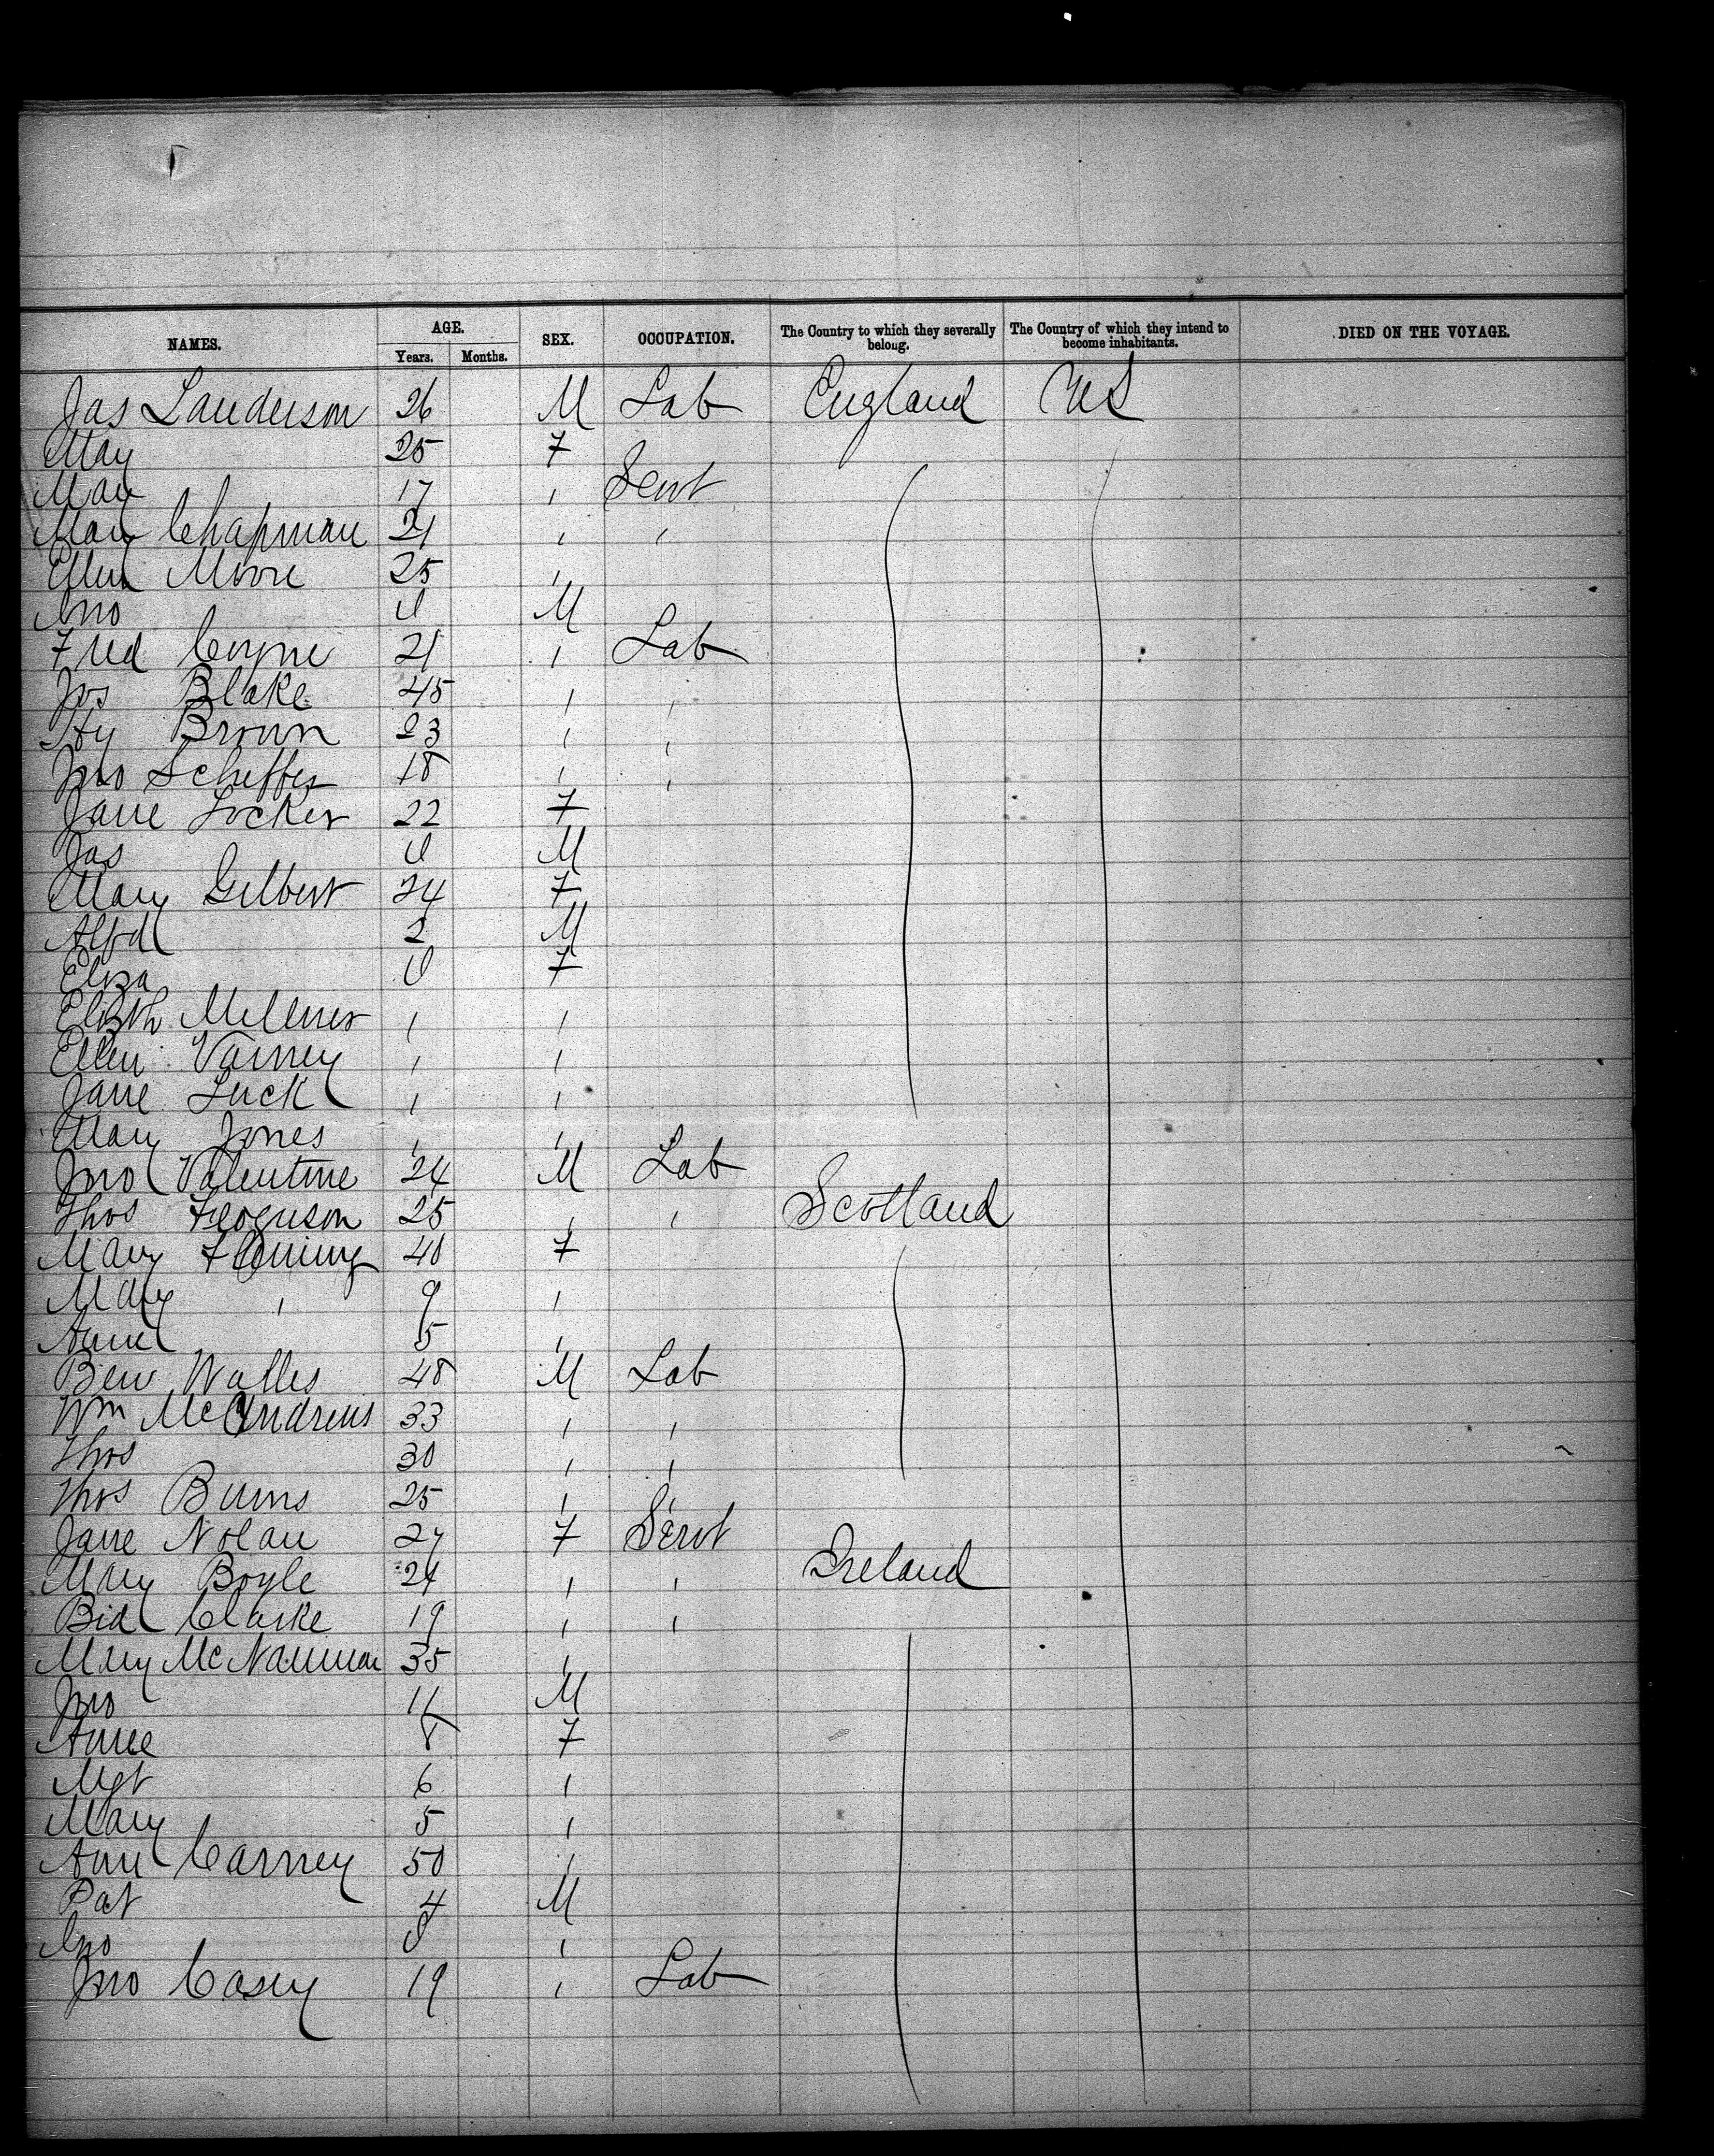 NAMES. AGE. SEX. OCCUPATION. The Country to which they severally belong. The Country of which they intend to become inhabitants. DIED ON THE VOYAGE.
Years. Months.
Jas Sanderson 26 M Lab England US
May 25 F
Mary 17 " Servt
Mary Chapman 21 " "
Ellen Moore 25 "
Jno 0 M
Fred Coyne 21 " Lab
Jos Blake 45 " "
Hy Brown 23 " "
Jno Scheffer 18 " "
Jane Locker 22 F
Jas 0 M
Mary Gilbert 24 F
Alfd 2 M
Eliza 0 F
Elizth Millner " "
Ellen Varney " "
Jane Luck " "
Mary Jones " "
Jno Valentine 24 M Lab
Thos Ferguson 25 " " Scotland
Mary Fleming 40 F
Mary " 9 "
Annie 5 "
Ben Walles 48 M Lab
Wm McAndrews 33 " "
Thos 30 " "
Thos Burns 25 " "
Jane Nolan 27 F Servt
Mary Boyle 24 " " Ireland
Bid Clarke 19 " "
Mary McNamara 35 "
Jno 11 M
Annie 8 F
Mgt 6 "
Mary 5 "
Ann Carney 50 "
Pat 4 M
Jno 0 "
Jno Casey 19 " Lab